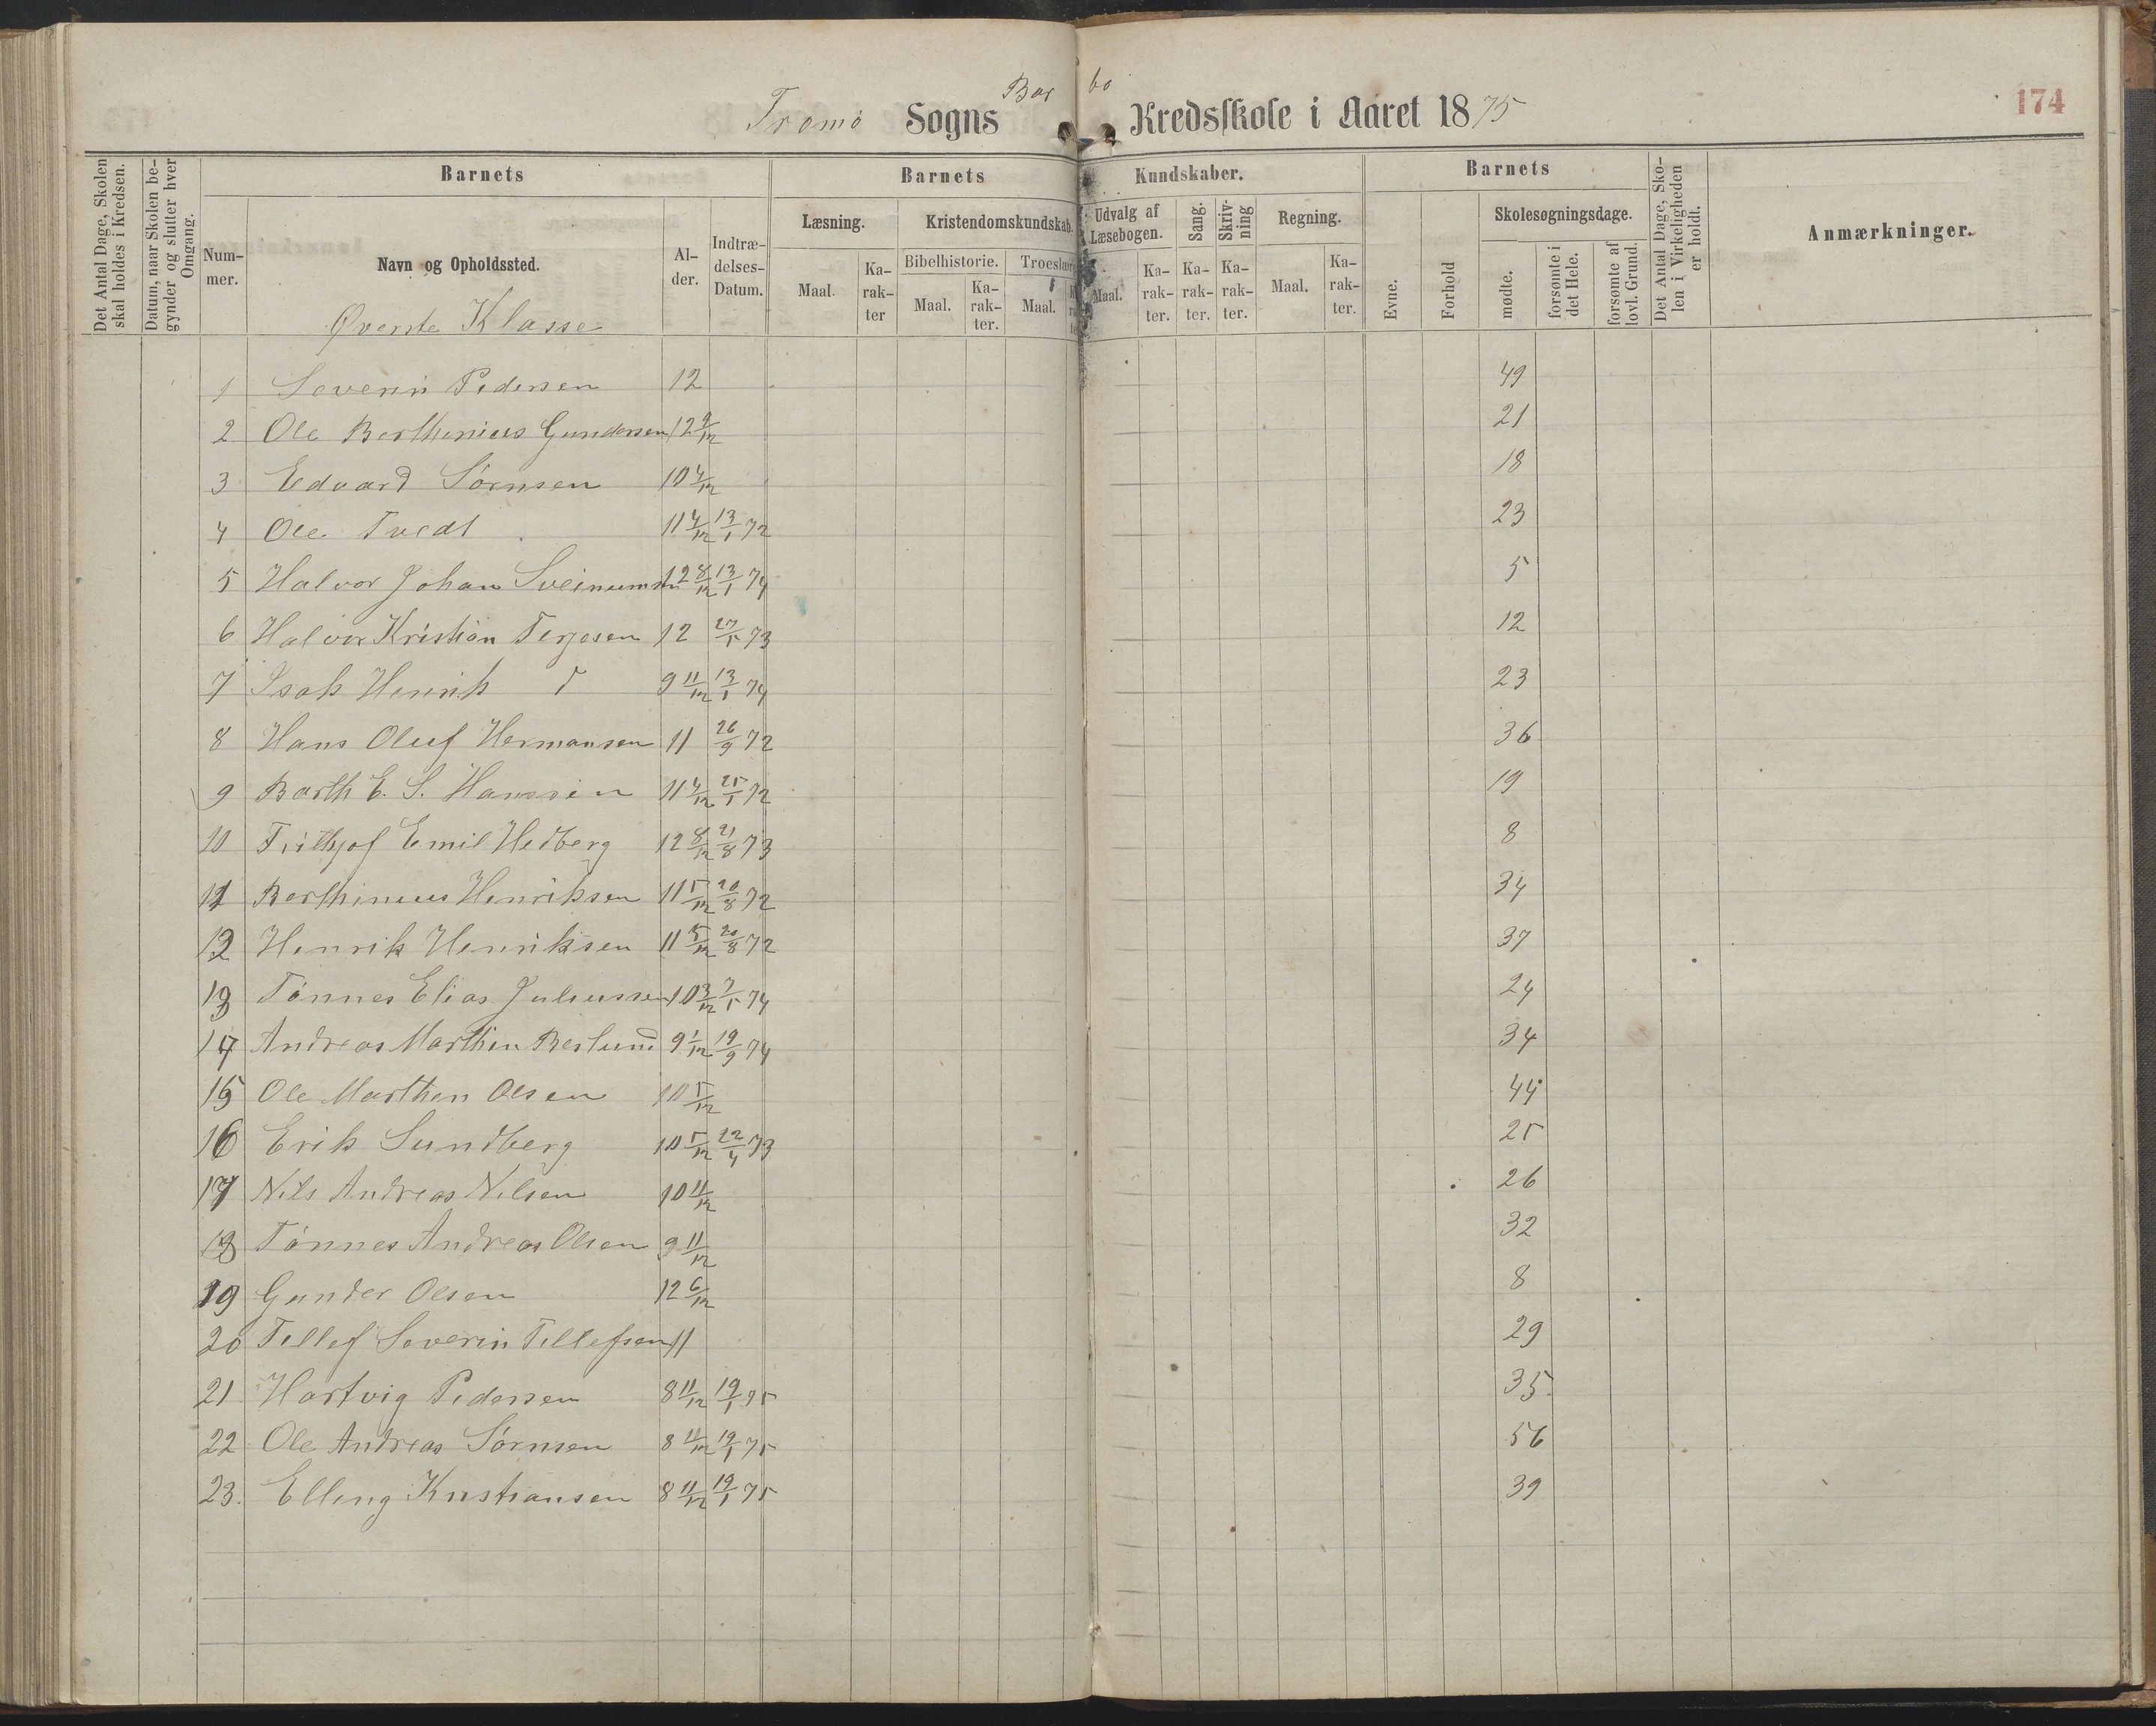 Tromø Sogns Barbo Kredsskole i Aaret 1875
174
Det Antal Dage, Skolen skal holdes i Kredsen.
Datum, naar Skolen begynder og slutter hver Omgang.
Barnets
Nummer.
Navn og Opholdssted.
Alder.
Indtrædelses-Datum.
Barnets Kundskaber.
Læsning.
Maal.
Karakter
Kristendomskundskab.
Bibelhistorie.
Maal.
Karakter.
Maal.
Udvalg af Læsebogen.
Maal.
Karakter.
Sang.
Karakter.
Skrivning
Karakter.
Regning.
Maal.
Karakter.
Barnets
Evne.
Forhold
Skolesøgningsdage.
mødte.
forsømte i det Hele.
forsømte af lovl. Grund.
Det Antal Dage, Skolen i Virkeligheden er holdt.
Anmærkninger.
Øverste Klasse
1 Severin Pedersen 12 49
2 Ole Berthinius Gundersen 12 9/12 21
3 Edvard Sørnsen 10 4/12 18
4 Ole Tvedt 11 4/12 13/1 72 23
5 Halvor Johan 12 8/12 13/1 74 5
6 Halvor Kristian Terjesen 12 27/5 73 12
7 Isak Henrik 9 11/12 13/1 74 23
8 Hans Oluf Hermansen 11 26/9 72 36
9 Barth E. S. Hanssen 11 4/12 25/1 72 19
10 Frithjof Emil Hedberg 12 8/12 21/8 73 8
11 Berthinius Henriksen 11 5/12 20/8 72 34
12 Henrik Henriksen 11 5/12 20/8 72 37
13 Tønnes Elias Juliussen 10 3/12 7/5 74 24
14 Andreas Marthin 9 1/12 19/9 74 34
15 Ole Marthen Olsen 10 5/12 44
16 Erik Sundberg 10 5/12 22/4 73 25
17 Nils Andreas Nilsen 10 11/12 26
18 Tønnes Andreas Olsen 9 11/12 32
19 Gunder Olsen 12 6/12 8
20 Tellef Severin Tellefsen 11 29
21 Hartvig Pedersen 8 11/12 19/1 75 35
22 Ole Andreas Sørnsen 8 11/12 19/1 75 56
23. Elling Kristiansen 8 11/12 19/1 75 39